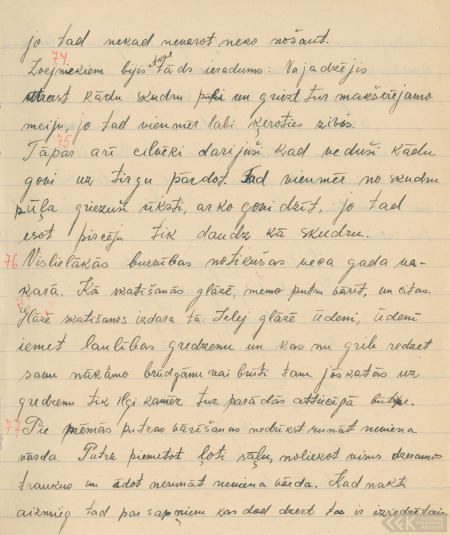 jo tad nekad nevarot neko nošaut.
74.
Zvejniekiem bijis arī tāds ieradums: Vajadzējis
atrast kādu skudru pūli un griezt tur makšķerējamo
meiju, jo tad vienmēr labi ķeroties zivis.
75
Tāpat arī cilvēki darījuši kad veduši kādu
govi uz tirgu pārdot. Tad vienmēr no skudru
pūļa griezuši rīksti, ar ko govi dzīt, jo tad
esot pircēju tik daudz kā skudru.
76 Vislielākās burvības notikušas veca gada va-
karā. Kā skatīšanās glāzē, memo putru vārīt, un citas.
Glāzē skatīšanos izdara tā: Ielej glāzē ūdeni, ūdenī
iemet laulības gredzenu un kas nu grib redzēt
savu nākamo brūdgānu vai brūti tam jāskatās uz
gredzenu tik ilgi kamēr tur parādās attiecīgā būtne.
77 Pie mēmās putras vārīšanas nedrīkst runāt neviena
vārda. Putra piemetot ļoti sāļu, noliekot visus dzeramos
traukus un ēdot nerunāt neviena vārda. Kad nakti
aizmieg tad pa sapņiem kas dod dzert tas ir izredzētais.